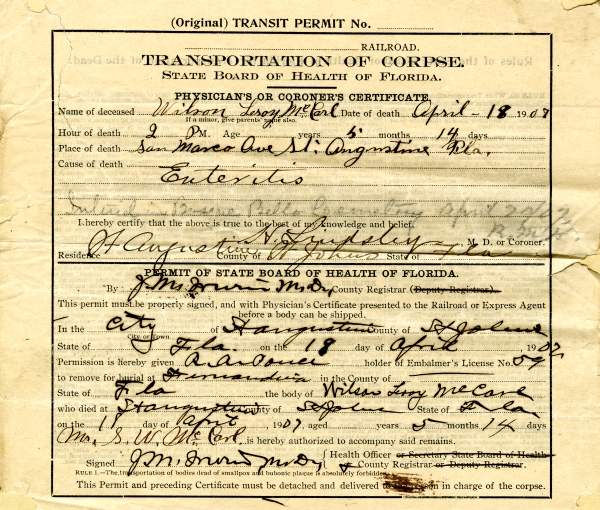 (Original) TRANSIT PERMIT No.
RAILROAD.
TRANSPORTATION OF CORPSE.
STATE BOARD OF HEALTH OF FLORIDA.
PHYSICIAN'S OR CORONER'S CERTIFICATE
Name of deceased Wilson Leroy McCarl Date of death April - 18 1907
If a minor, give parents' name also.
Hour of death 2 P.M. Age years 5 months 14 days
Place of death San Marco Ave St. Augustine Fla.
Cause of death
Enteritis
Interred in Bosque Bello Cemetery April
I hereby certify that the above is true to the best of my knowledge and belief.
H. Lindsley M. D. or Coroner.
Residence St Augustine County of St Johns State of Fla
PERMIT OF STATE BOARD OF HEALTH OF FLORIDA.
By County Registrar (Deputy Registrar).
This permit must be properly signed, and with Physician's Certificate presented to the Railroad or Express Agent
before a body can be shipped.
In the City of St Augustine County of St Johns
City or Town
State of Fla. on the 18 day of April, 1907
Permission is hereby given holder of Embalmer's License No. 59
to remove for burial at Fernandina in the County of
State of Fla the body of Wilson Leroy McCarl
who died at St Augustine County of St Johns State of Fla
on the day of April 1907 aged years 5 months 14 days
Mr. S. W. McCarl is hereby authorized to accompany said remains.
Health Officer or Secretary State Board of Health
Signed County Registrar or Deputy Registrar.
RULE 1.—The transportation of bodies dead of smallpox and bubonic plague is absolutely forbidden.
This Permit and preceding Certificate must be detached and delivered to the person in charge of the corpse.